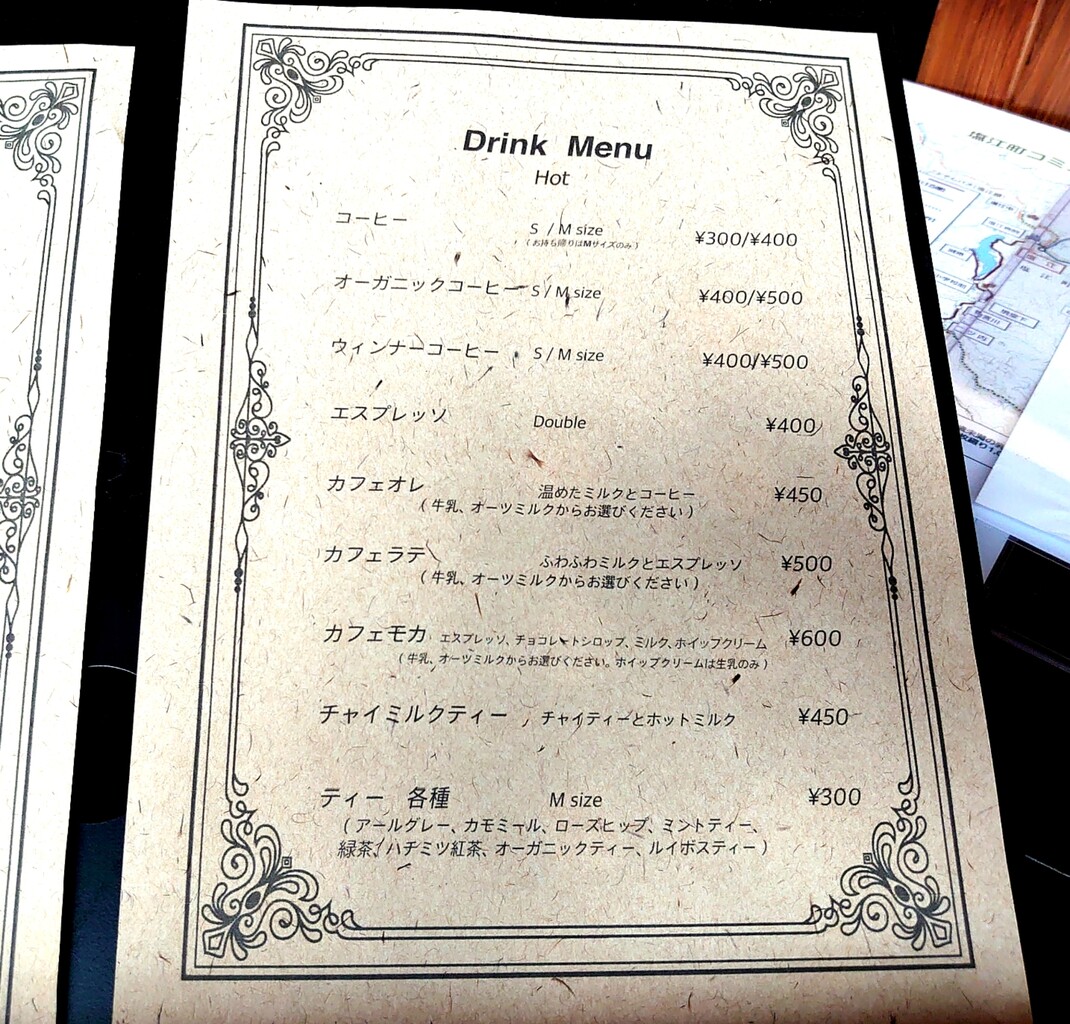 Drink Menu
Hot
コーヒー S / M size ¥300/¥400
( お持ち帰りはMサイズのみ )
オーガニックコーヒー S / M size ¥400/¥500
ウィンナーコーヒー S / M size ¥400/¥500
エスプレッソ Double ¥400
カフェオレ 温めたミルクとコーヒー ¥450
( 牛乳、オーツミルクからお選びください )
カフェラテ ふわふわミルクとエスプレッソ ¥500
( 牛乳、オーツミルクからお選びください )
カフェモカ エスプレッソ、チョコレートシロップ、ミルク、ホイップクリーム ¥600
( 牛乳、オーツミルクからお選びください。ホイップクリームは生乳のみ )
チャイミルクティー チャイティーとホットミルク ¥450
ティー 各種 M size ¥300
( アールグレー、カモミール、ローズヒップ、ミントティー、
緑茶、ハチミツ紅茶、オーガニックティー、ルイボスティー )
塩江町コミ